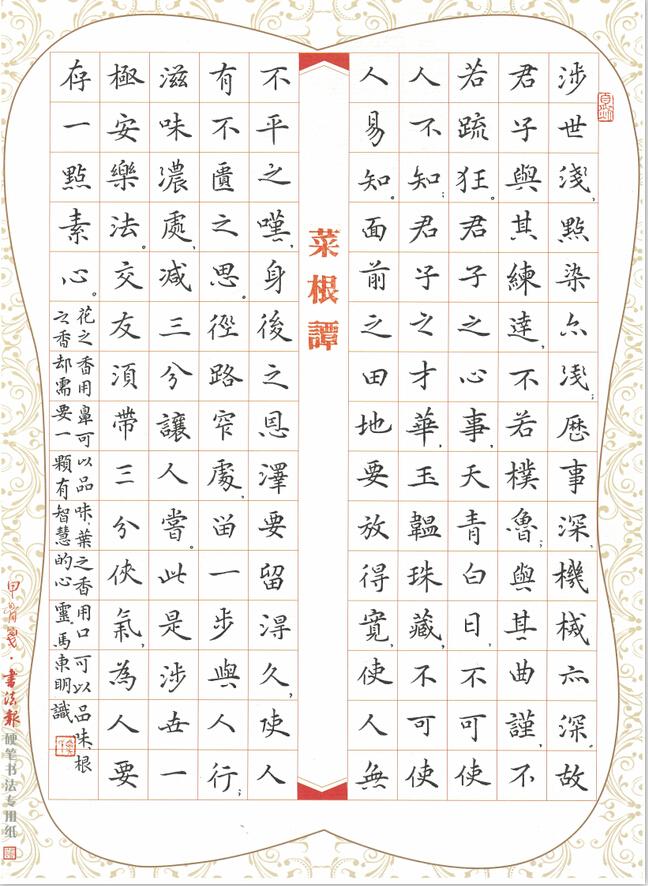 涉世淺，點染亦淺；歷事深，機械亦深。故
君子與其練達，不若樸魯；與其曲謹，不
若疏狂。君子之心事，天青白日，不可使
人不知；君子之才華，玉韞珠藏，不可使
人易知。面前之田地要放得寬，使人無
菜根譚
不平之嘆，身後之恩澤要留得久，使人
有不匱之思。徑路窄處，畱一步與人行；
滋味濃處，減三分讓人嘗。此是涉世一
極安樂法。交友須帶三分俠氣，為人要
存一點素心。
花之香用鼻可以品味，葉之香用口可以品味，根
之香却需要一顆有智慧的心 靈馬東明識
書法報·硬笔书法专用纸